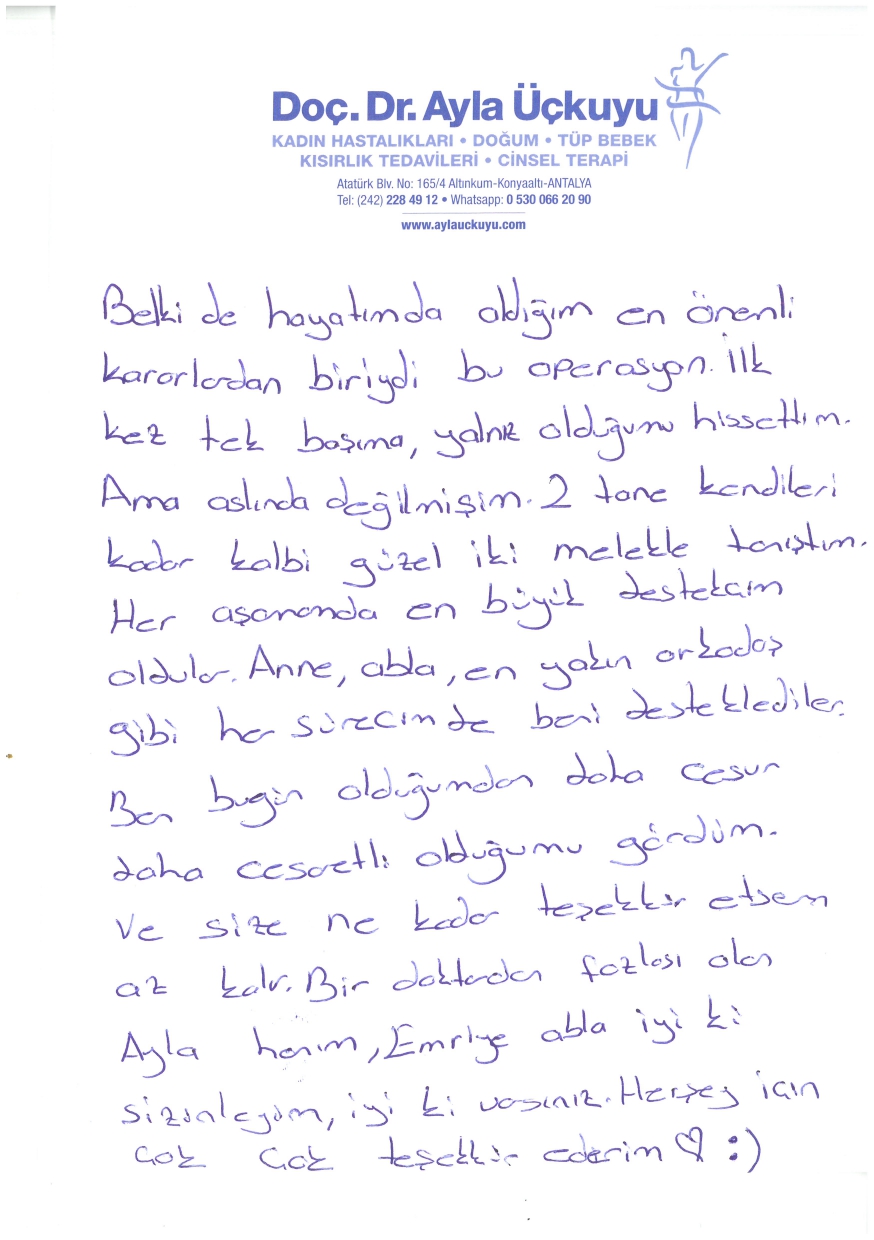 Doç. Dr. Ayla Üçkuyu
KADIN HASTALIKLARI • DOĞUM • TÜP BEBEK
KISIRLIK TEDAVİLERİ • CİNSEL TERAPİ
Atatürk Blv. No: 165/4 Altınkum-Konyaaltı-ANTALYA
Tel: (242) 228 49 12 • Whatsapp: 0 530 066 20 90
www.aylauckuyu.com
Belki de hayatımda aldığım en önemli
kararlardan biriydi bu operasyon. İlk
kez tek başıma, yalnız olduğumu hissettim.
Ama aslında değilmişim. 2 tane kendileri
kadar kalbi güzel iki melekle tanıştım.
Her aşamamda en büyük destekcim
oldular. Anne, abla, en yakın arkadaş
gibi her sürecimde beni desteklediler.
Ben bugün olduğumdan daha cesur
daha cesaretli olduğumu gördüm.
Ve size ne kadar teşekkür etsem
az kalır. Bir doktordan fazlası olan
Ayla hanım, Emriye abla iyi ki
sizinleyim, iyi ki varsınız. Herşey için
çok çok teşekkür ederim ♡ :)